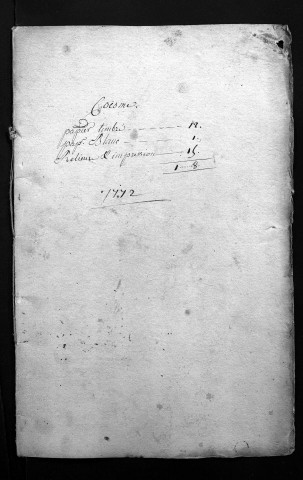 Coesme
papier timbré — 12.
pap.r Blanc — 1.
Relieur & impression — 15.
1 — 8
1772